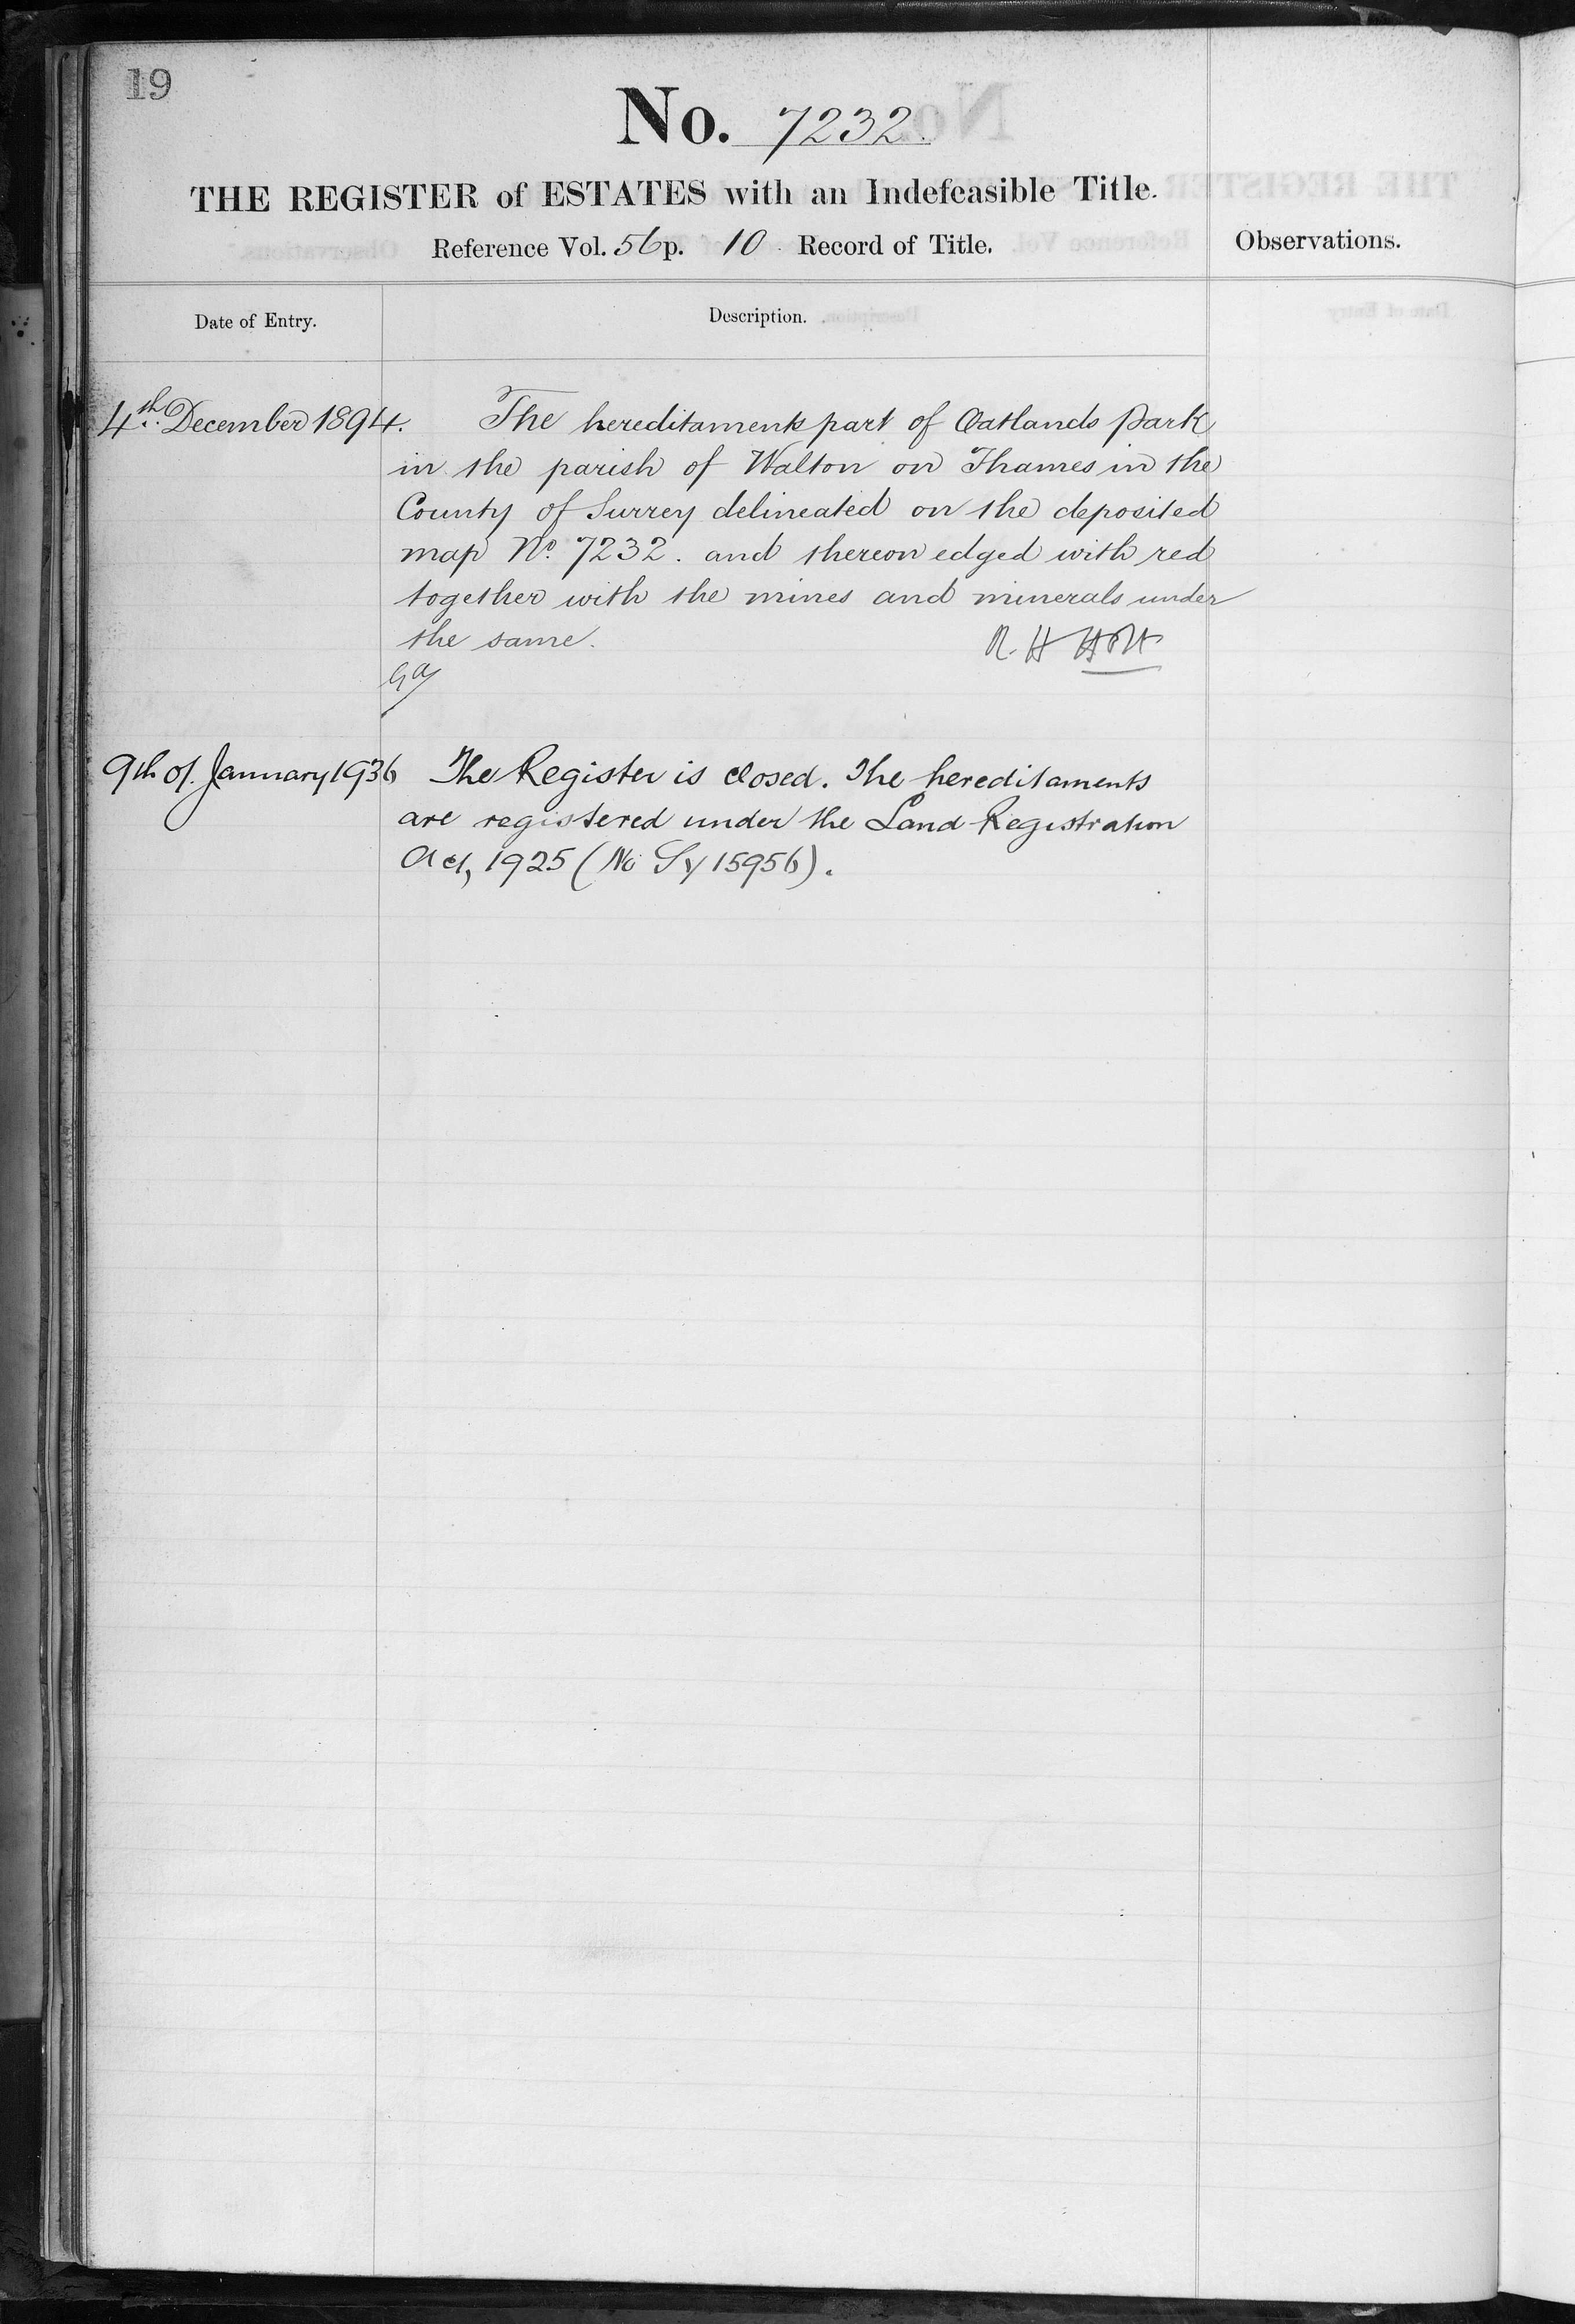 19
No. 7232.
THE REGISTER of ESTATES with an Indefeasible Title.
Reference Vol. 56 p. 10 Record of Title.
Observations.
Date of Entry.
Description.
4th. December 1894.
The hereditaments part of Oatlands Park
in the parish of Walton on Thames in the
County of Surrey delineated on the deposited
map No. 7232. and thereon edged with red
together with the mines and minerals under
the same.
R. H Holt
9th of January 1936
The Register is closed. The hereditaments
are registered under the Land Registration
Act, 1925 (No Sy 15956).